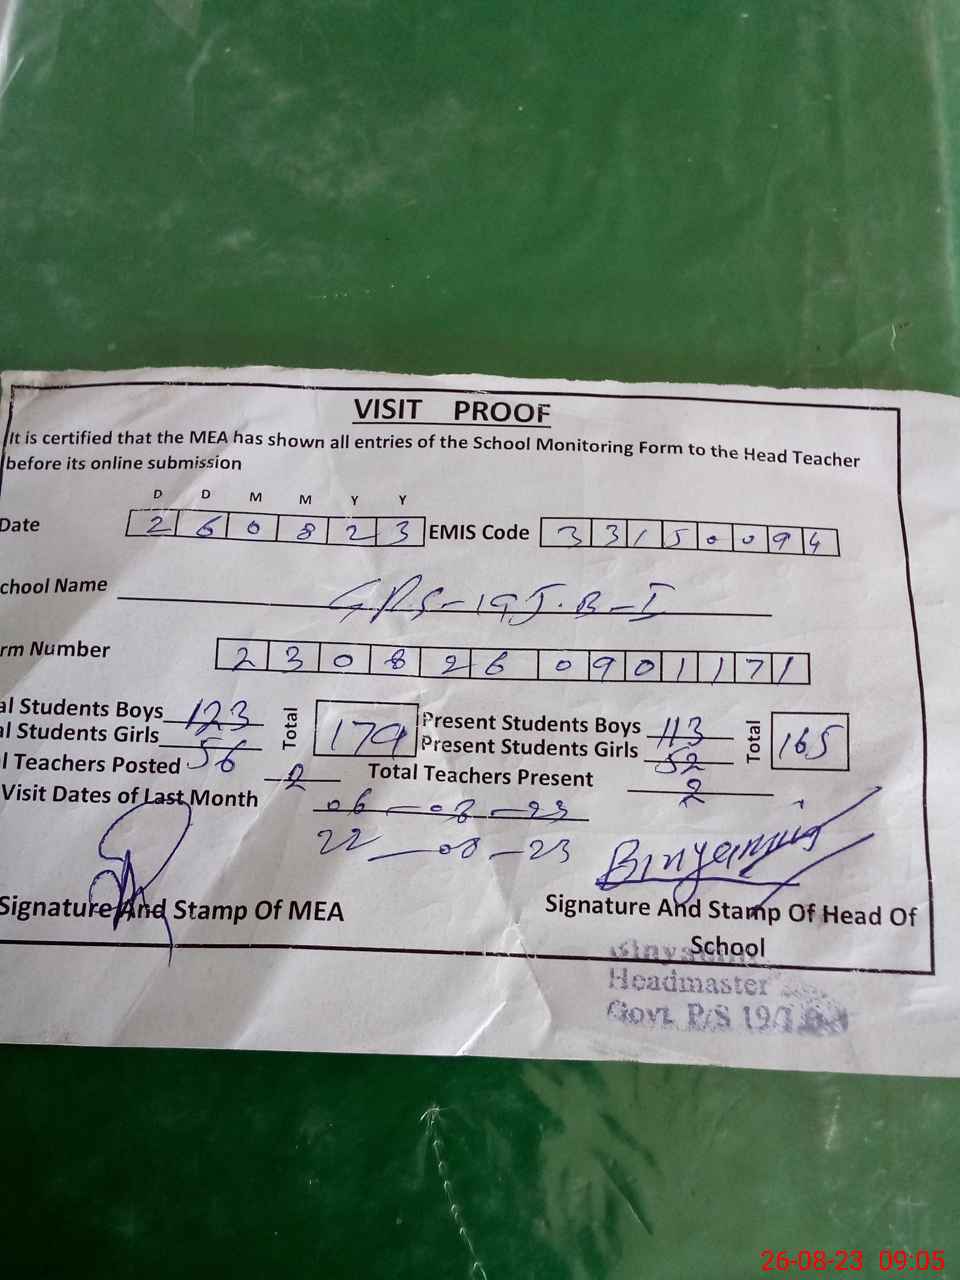 VISIT PROOF
It is certified that the MEA has shown all entries of the School Monitoring Form to the Head Teacher
before its online submission
D D M M Y Y
Date 2 6 0 8 2 3 EMIS Code 3 3 1 5 0 0 9 4
chool Name GPS-19J.B-I
rm Number 2 3 0 8 2 6 0 9 0 1 1 7 1
al Students Boys 123 Total 179 Present Students Boys 113 Total 165
al Students Girls 56 Present Students Girls 52
l Teachers Posted 2 Total Teachers Present 2
Visit Dates of Last Month 06-08-23
22-08-23
Binyamin
Signature And Stamp Of MEA Signature And Stamp Of Head Of
School
Headmaster
Govt. P/S 19/J
26-08-23 09:05